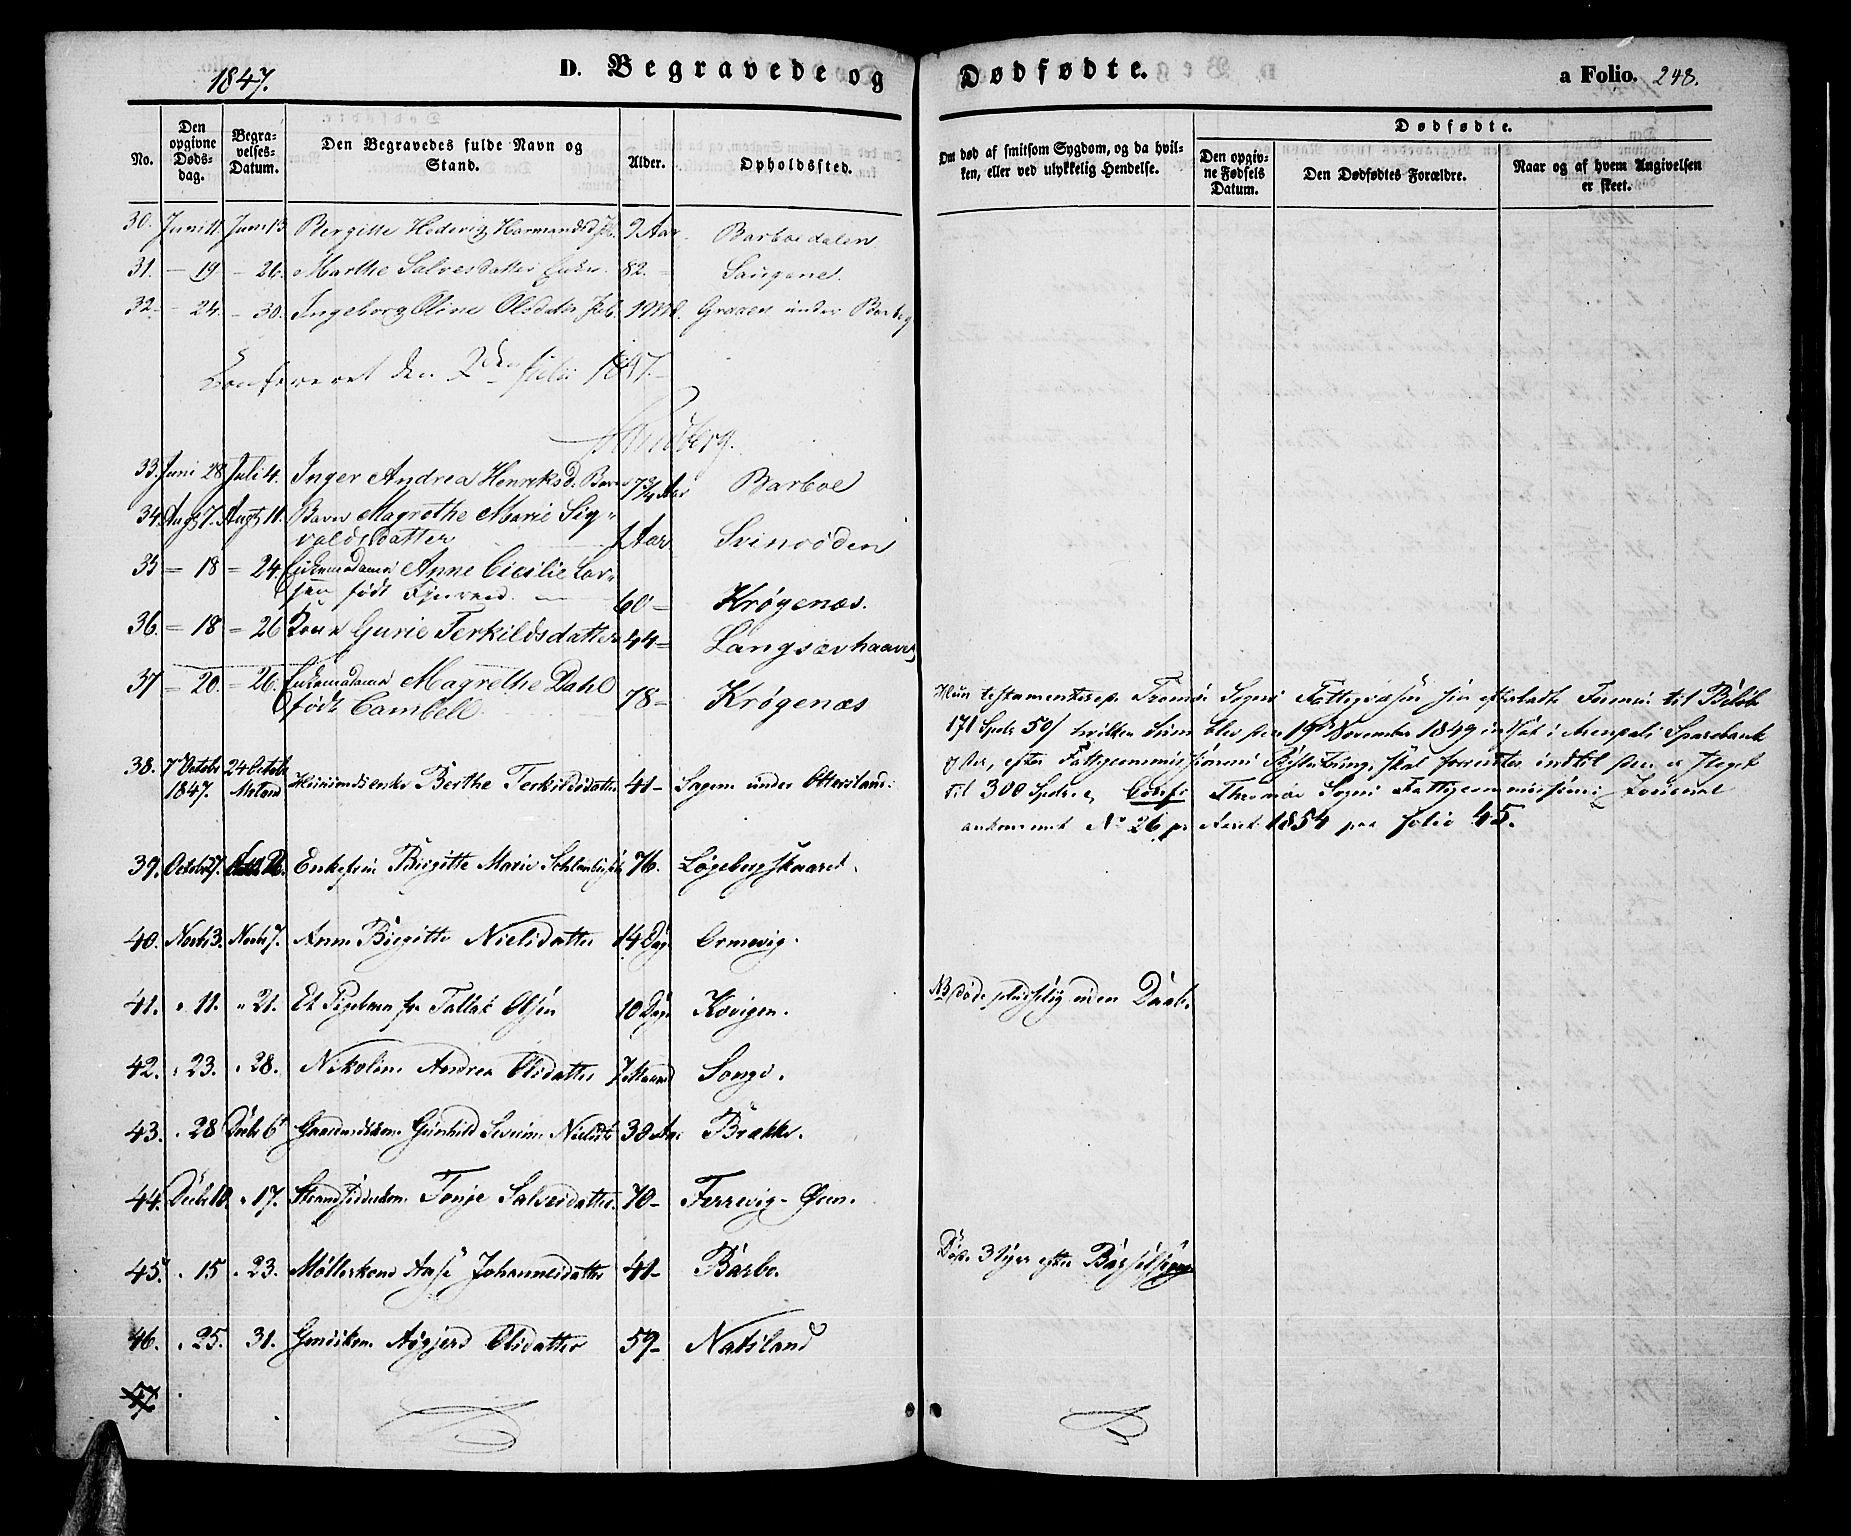 1847.
D. Begravede og Dødfødte.
a Folio. 248.
No.
Den opgivne Døds-dag.
Begra-velses-Datum.
Den Begravedes fulde Navn og Stand.
Alder.
Opholdssted.
Om død af smitsom Sygdom, og da hvil-ken, eller ved ulykkelig Hendelse.
Dødfødte.
Den opgiv-ne Fødsels Datum.
Den Dødfødtes Forældre.
Naar og af hvem Angivelsen er skeet.
30. Juni 11. Juni 13 Bergitte Hedevig Harmandsd 9 Aar Barboedalen
31. — 19 — 26. Marthe Salvesdatter 82. Saugene.
32. — 24. — 30. Ingeborg Oline Olsdatter 1 Md. Graaen under Barboe
Confereret den 2den Juli 1847.
33. Juni 28 Juli 4. Inger Andrea Henriksd. Barn 7¾ Aar Barboe
34. Augt 7. Augt 11. Barn Magrethe Marie Sig-
valdsdatter 1 Aar Svinodden
35 = 18 = 24. Enkemadame Anne Cicilie Lar-
sen født 60 — Krøgenæs.
36. = 18 = 26 Kone Gurie Terkildsdatter 44 = Langsævhaaven
37 = 20. = 26. Enkemadame Magrethe Dahl
født Cambell 78 — Krøgenæs
Hun Tromø Sogns Fattigvæsen sin efterladte Formue til Beløb
171 Spdr 50 s hvilken Sum blev den 19d November 1849 indsat i Arendals Sparebank
og der, efter Fattigcommissionens Beslutning, skal forrentes indtil den er steget
til 300 Spdr. Confr Tromøe Sogns Fattigcommissions Journal
No 26 for Aaret 1854 paa folio 45.
38. 7 Octobr 1847. 24 Octobr Huusmandsenke Berthe Terkildsdatter 41 — Sagene under Ottersland.
39. Octobr 27. Enkefru Birgitte Marie 76. Løgebergskaaret.
40. Novbr 3. Novbr 7. Anne Birgitte Nielsdatter 14 Dage Ormevig.
41. " 11. " 21. Et Pigebarn for Tallak Olsen 10 Dage Kovigen. NB døde pludselig uden Daab.
42. " 23. " 28. Nikoline Andrea Olsdatter 7 Maaned Songe.
43. " 28 Decbr 6 Gaardmandskone Gunhild Severine Nielsdtr 38 Aar Brække.
44. Decbr 10. " 17. Strandsidderkone Tonje Salvesdatter. 70 — Færrevig-Øen.
45. " 15 " 23. Møllerkone Aase Johannesdatter 41 — Barbo. Døde 3 Uger efter Barselseng
46. " 25. 31. Gmdskone Asgjerd Olsdatter 59 — Natsland
47